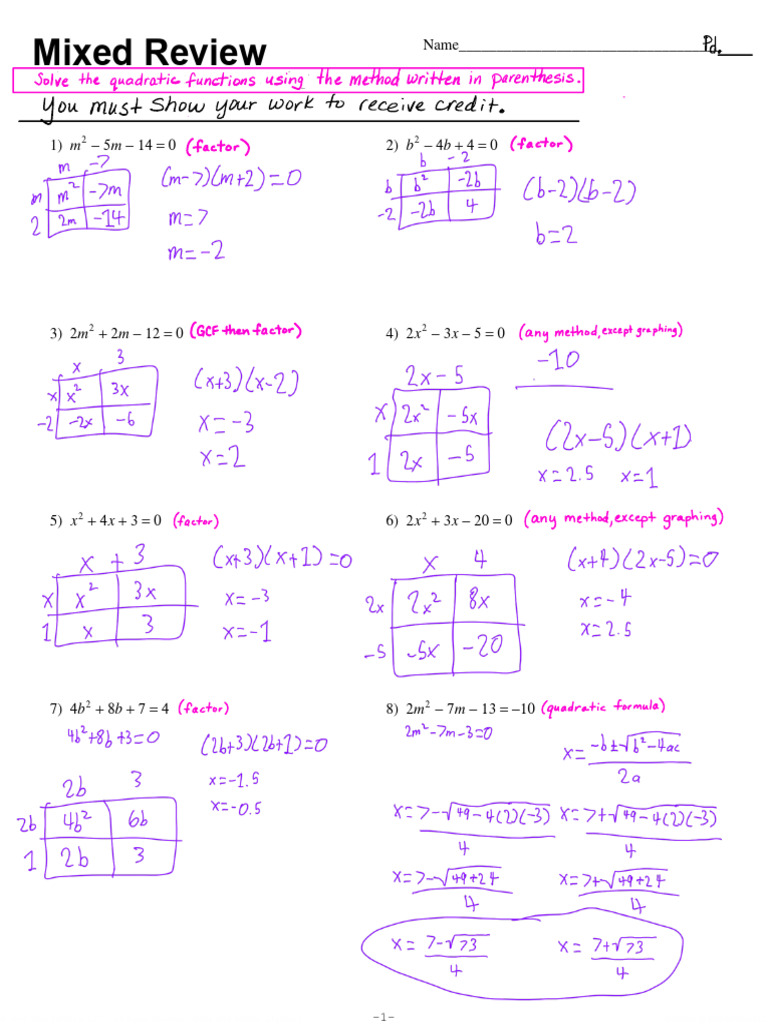 Mixed Review
Name Pd.
Solve the quadratic functions using the method written in parenthesis.
You must show your work to receive credit.
1) m² – 5m – 14 = 0 (factor)
m -7
m m² -7m
2 2m -14
(m-7)(m+2)=0
m=7
m=-2
2) b² – 4b + 4 = 0 (factor)
b -2
b b² -2b
-2 -2b 4
(b-2)(b-2)
b=2
3) 2m² + 2m – 12 = 0 (GCF then factor)
x 3
x x² 3x
-2 -2x -6
(x+3)(x-2)
x=-3
x=2
4) 2x² – 3x – 5 = 0 (any method, except graphing)
-10
2x-5
x 2x² -5x
1 2x -5
(2x-5)(x+1)
x=2.5 x=1
5) x² + 4x + 3 = 0 (factor)
x + 3
x x² 3x
1 x 3
(x+3)(x+1)=0
x=-3
x=-1
6) 2x² + 3x – 20 = 0 (any method, except graphing)
x 4
2x 2x² 8x
-5 -5x -20
(x+4)(2x-5)=0
x=-4
x=2.5
7) 4b² + 8b + 7 = 4 (factor)
4b²+8b+3=0
2b 3
2b 4b² 6b
1 2b 3
(2b+3)(2b+1)=0
x=-1.5
x=-0.5
8) 2m² – 7m – 13 = –10 (quadratic formula)
2m²-7m-3=0
x= -b±√b²-4ac
2a
x=7-√49-4(2)(-3) x=7+√49-4(2)(-3)
4 4
x=7-√49+24 x=7+√49+24
4 4
x= 7-√73 x= 7+√73
4 4
-1-